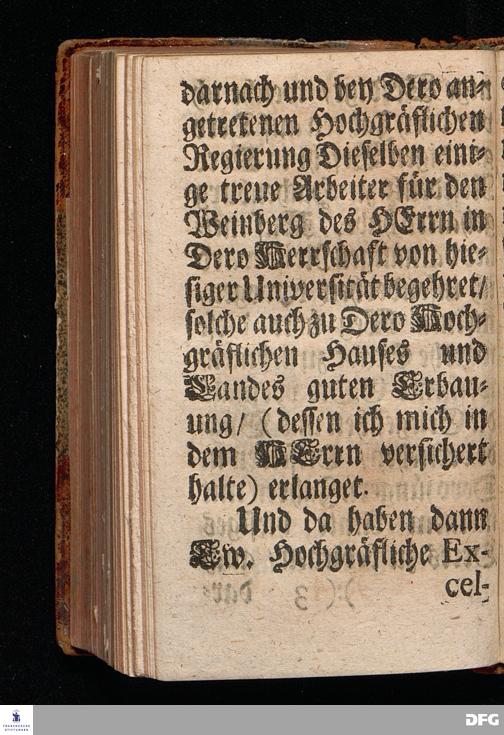 darnach und bey Dero an-
getretenen Hochgräflichen
Regierung Dieselben eini-
ge treue Arbeiter für den
Weinberg des HErrn in
Dero Herrschaft von hie-
siger Universität begehret/
solche auch zu Dero Hoch-
gräflichen Hauses und
Landes guten Erbau-
ung/ (dessen ich mich in
dem HErrn versichert
halte) erlanget.
Und da haben dann
Ew. Hochgräfliche Ex-
cel-
FRANCKESCHE
STIFTUNGEN
DFG